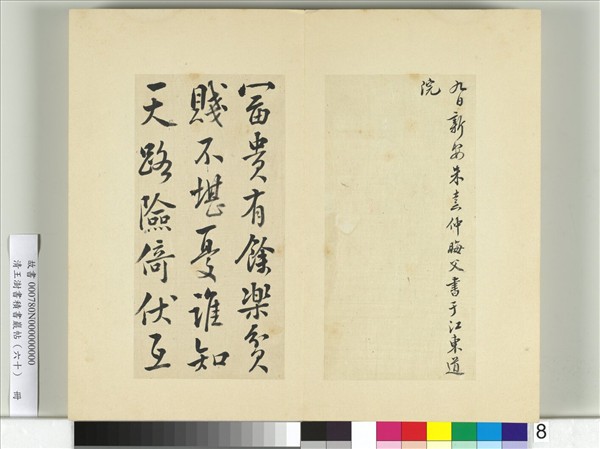 九日新安朱熹仲晦父書于江東道
院
富貴有餘樂貧
賤不堪憂誰知
天路險倚伏互
故書 000780N000000000
清王澍書積書巖帖（六十） 冊
8